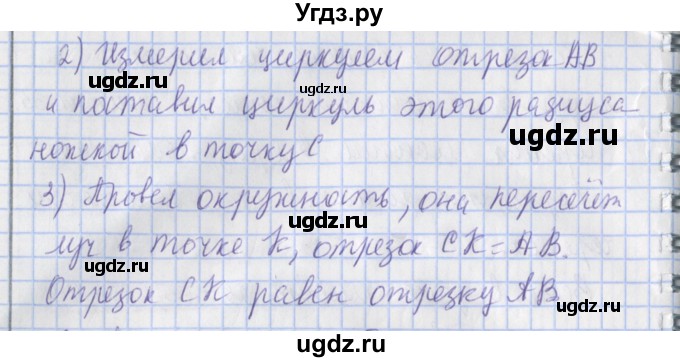 Угдз.ру
2) Измерил циркулем отрезок АВ
и поставил циркуль этого радиуса
ножкой в точку С
3) Провел окружность, она пересечёт
луч в точке К, отрезок СК = АВ.
Отрезок СК равен отрезку АВ
ugdz.ru
ugdz.ru
ugdz.ru
ugdz.ru
ugdz.ru
ugdz.ru
ugdz.ru
ugdz.ru
ugdz.ru